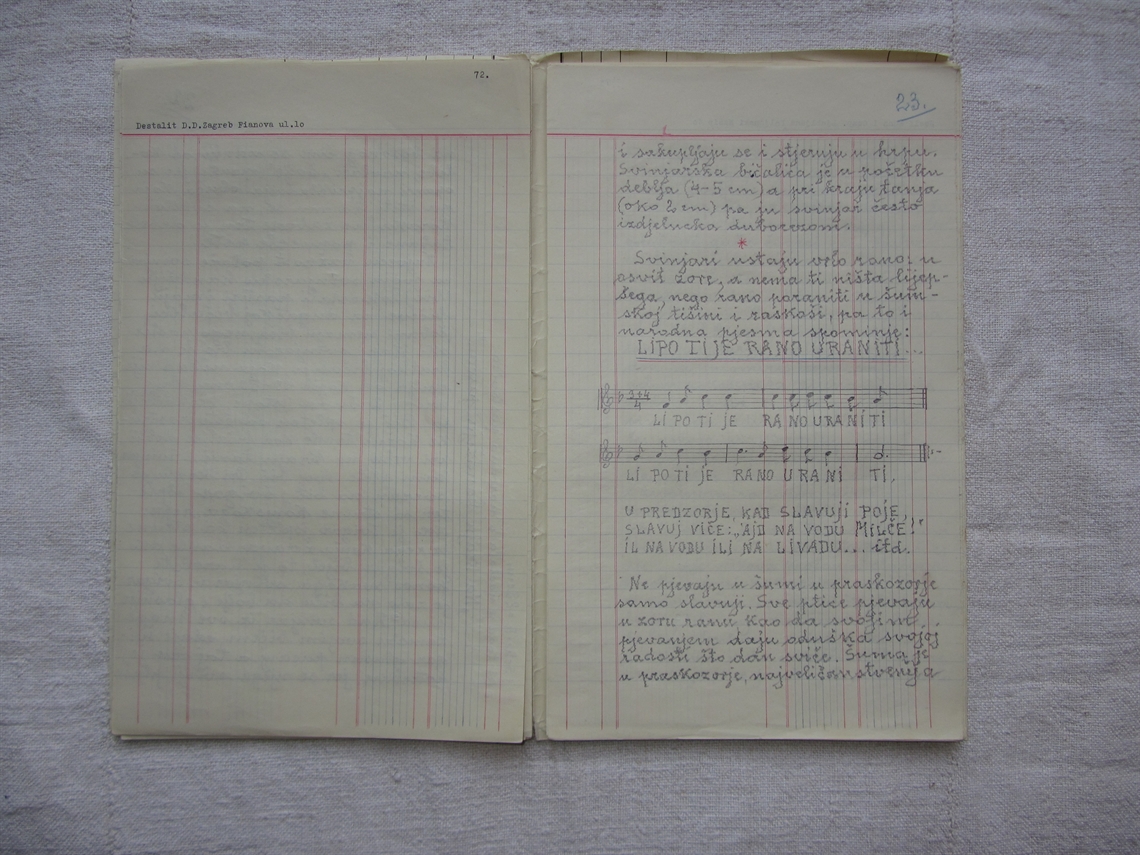 72.
Destalit D.D.Zagreb Fianova ul.lo
23.
i sakupljaju se i stjeruju u hrpu.
Svinjarska bičalica je u početku
deblja (4-5 cm) a pri kraju tanja
(oko 2 cm) pa ju svinjar često
izdjelucka duborezom.
*
Svinjari ustaju vrlo rano: u
osvit zore, a nema ti ništa lijep-
šega, nego rano poraniti u šum-
skoj tišini i raskoši, pa to i
narodna pjesma spominje:
LIPO TI JE RANO URANITI...
3+4
4
LI PO TI JE RA NO U RA NI TI
LI PO TI JE RA NO U RA NI TI,
U PREDZORJE, KAD SLAVUJI POJE,
SLAVUJ VIČE: „AJD NA VODU MILČE!"
IL NA VODU ILI NA LIVADU... itd.
Ne pjevaju u šumi u praskozorje
samo slavuji. Sve ptice pjevaju
u zoru ranu kao da svojim
pjevanjem daju oduška svojoj
radosti što dan sviće. Šuma je
u praskozorje, najveličanstvenija